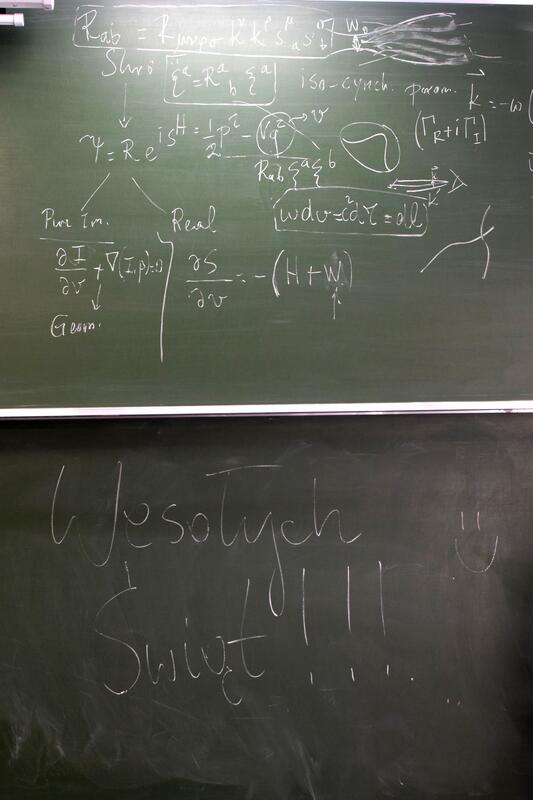 R_ab = R_μνρσ k^ν k^ρ s^μ_a s^σ_b
W₀
ξ̈^a = R^a_b ξ^a
iso-synch. param.
k⃗ = -ω (
Ψ = R e^{iS}
H = ½p² - Vq² → v
(Γ_R + iΓ_I)
R_ab ξ^a ξ^b
λ
Pure Im.
Real
wdv = c²dτ = dl
∂I/∂v + ∇(I,p)=0
∂S/∂v = -(H + W)
Geom.
Wesołych
Świąt !!!